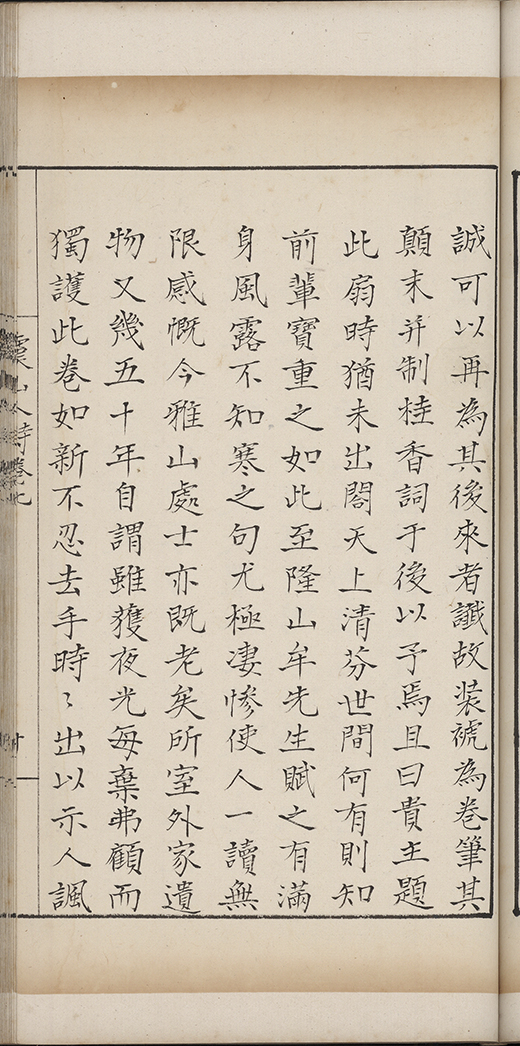 誠可以再為其後來者讖故装褫為卷筆其
顛末并制桂香詞于後以予焉且曰貴主題
此扇時猶未出閣天上清芬世間何有則知
前輩寶重之如此至隆山牟先生賦之有滿
身風露不知寒之句尤極凄慘使人一讀無
限感慨今雅山處士亦既老矣所室外家遺
物又幾五十年自謂雖獲夜光每棄弗顧而
獨護此卷如新不忍去手時〻出以示人諷